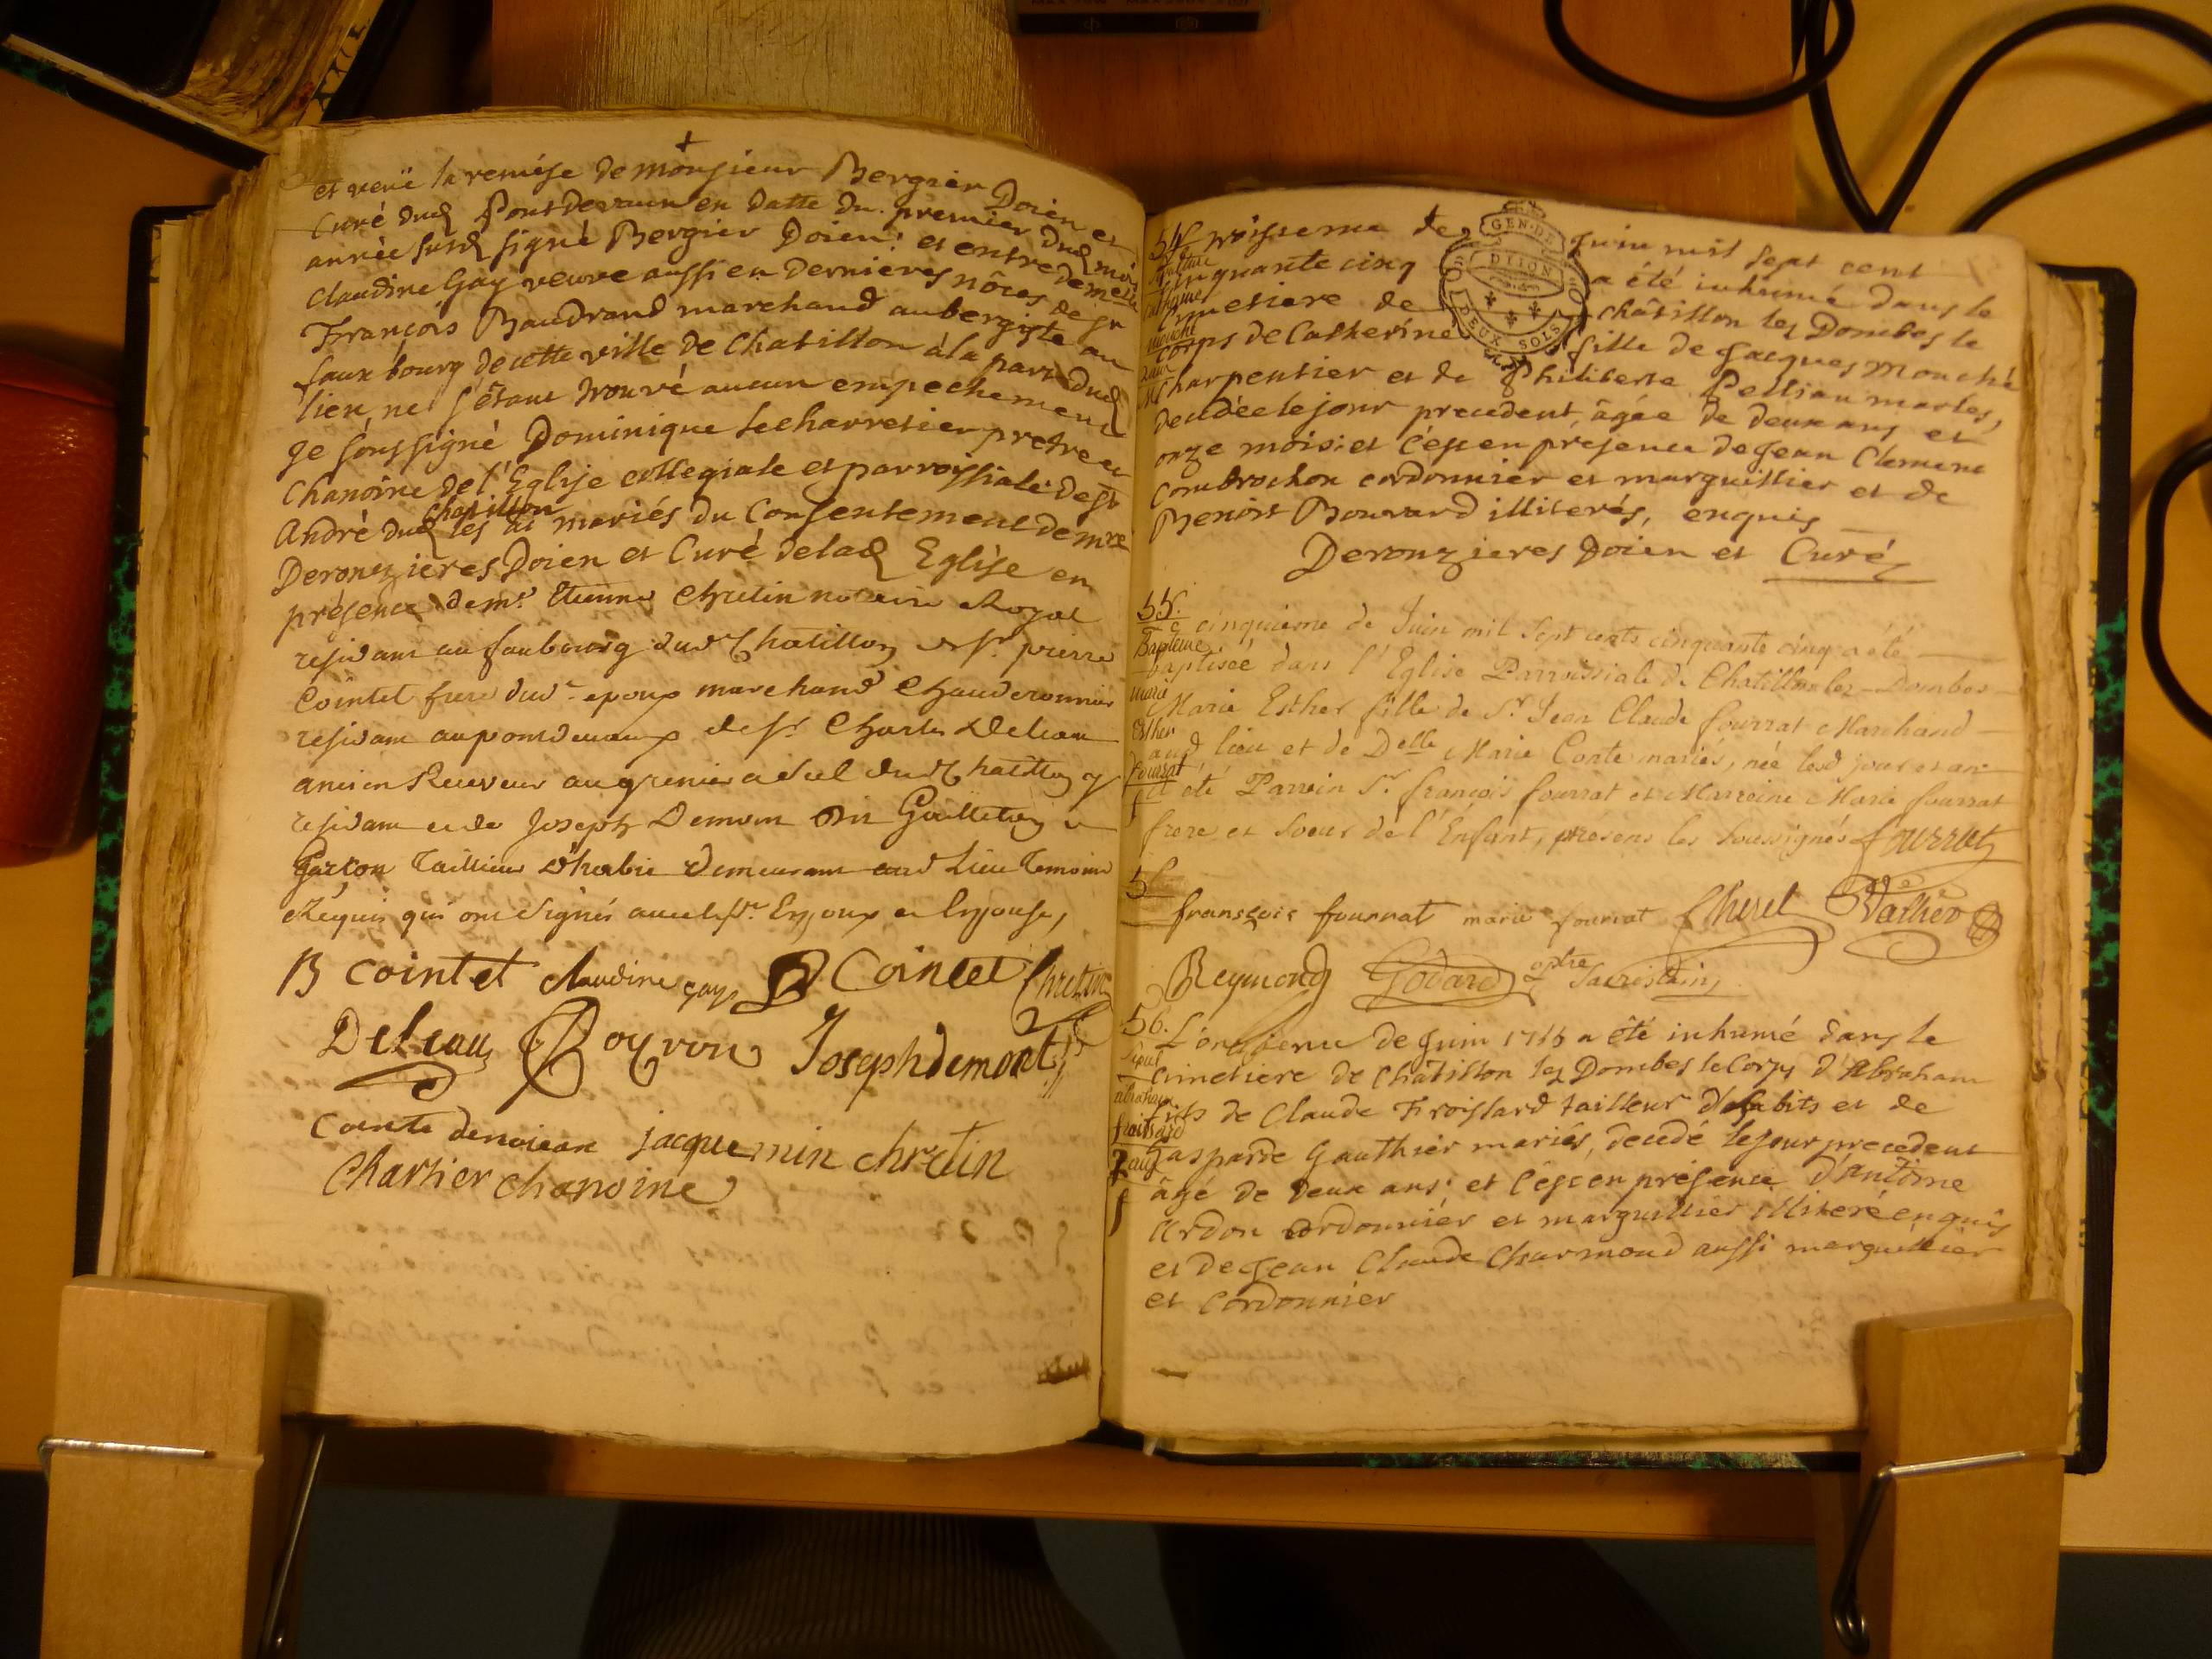 et veuë la remise de monsieur Bergier Doien et
Curé dud Pontdevaux en datte du premier dud mois
année susd signé Bergier Doien: et entre demelle
Claudine Gay veuve aussi en dernieres nôces de sr
François Baudrand marchand aubergiste au
fauxbourg de cette ville de Chatillon à la part dud
lieu, ne s'étant trouvé aucun empechement
je soussigné Dominique Lecharretier pretre et
Chanoine de l'Eglise collegiale et parroissiale de st
André dud chatillon les ai mariés du Consentement de mre
Deronzieres Doien et Curé de lad Eglise en
présence de mr. Etienne Chretin notaire Royal
residant au faubourg dud Chatillon de sr. pierre
Cointet frere dud. epoux marchand Chauderonnier
residant au pontdevaux de sr. Charles Deleau
ancien Receveur au grenier a sel dud Chatillon y
residant et de Joseph Demom dit
Garçon tailleur d'habit demeurant aud Lieu temoins
Requis qui ont signés avec les sr. Epoux et Epouse,
B cointet claudine gay Cointet Chretin
Deleau Boyron Joseph demont
Cointe denoiean jacquemin chretin
Chartier chanoine
54 troisieme de juin mil sept cent
cinquante cinq a été inhumé dans le
Cymetiere de châtillon lez Dombes le
corps de Catherine fille de Jacques Mouché
Charpentier et de Philiberte Pellian mariés,
decedée le jour precedent, âgée de deux ans et
onze mois: et c'est en presence de Jean Clement
Combrochon cordonnier et marguillier et de
Benoit Bouvard illiterés, enquis
Deronzieres Doien et Curé
GEN. DE DEUX SOLS
55.
Le cinquieme de Juin mil sept cents cinquante cinq a été
Bapteme
baptisée dans l'Eglise Parroissiale de Chatillon lez-Dombes
marie
Marie Esther fille de Sr. Jean Claude fourrat Marchand
Esther
aud, lieu et de Delle Marie Conte mariés, née lesd jour et an
fourrat
et été Parrein Sr. françois fourrat et Marreine Marie fourrat
frere et soeur de l'Enfant, presens les soussignés fourrat
fransçois fourrat marie fourrat Cheret Vacher
Reymond Godard ptre Sacristain,
56.
L'onzieme de juin 1755 a été inhumé dans le
cimetiere de châtillon lez Dombes le Corps d'Abraham
abraham
fils de Claude Froissard tailleur d'habits et de
froissard
Gasparde Gauthier mariés, decedé le jour precedent
2 ans
âgé de deux ans; et c'est en présence d'antoine
Ardon cordonnier et marguillier illiteré enquis
et de Jean Claude Charmond aussi marguillier
et Cordonnier